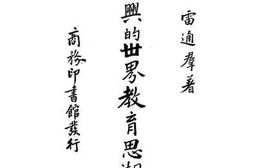 雷通羣著
興的世界教育思潮
商務印書館發行